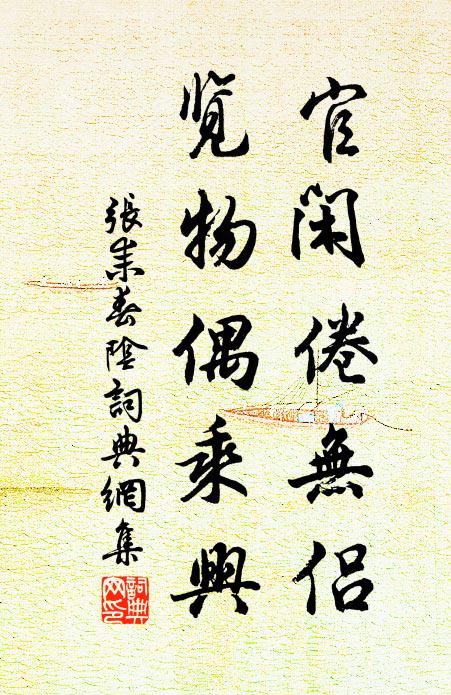 官闲倦無侶
览物偶乘興
張耒春陰詞典網集
詞典网印